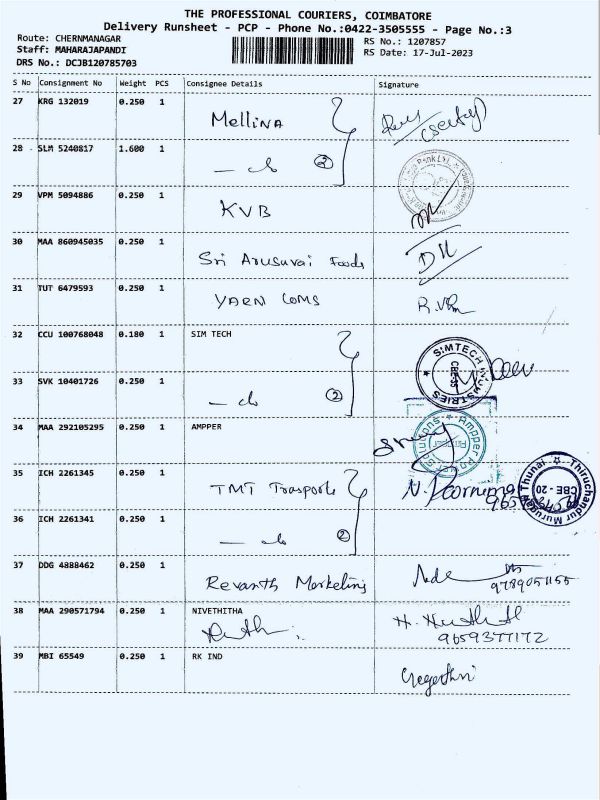 THE PROFESSIONAL COURIERS, COIMBATORE
Delivery Runsheet - PCP - Phone No.:0422-3505555 - Page No.:3
Route: CHERNMANAGAR
RS No.: 1207857
Staff: MAHARAJAPANDI
RS Date: 17-Jul-2023
DRS No.: DCJB120785703
S No Consignment No Weight PCS Consignee Details Signature
27 KRG 132019 0.250 1 Mellina
28 SLM 5240817 1.600 1 — do 2
29 VPM 5094886 0.250 1 KVB
30 MAA 860945035 0.250 1 Sri Arusuvai Foods
31 TUT 6479593 0.250 1 YAEN COMS
32 CCU 100768048 0.180 1 SIM TECH
SIMTECH INDUSTRIES CBE-35
33 SVK 10401726 0.250 1 — do 2
34 MAA 292105295 0.250 1 AMPPER
Ampper
35 ICH 2261345 0.250 1 TMT Trasports N. Poornima
Thiruchandur Murugan Thunai CBE - 20
36 ICH 2261341 0.250 1 — do 2
37 DDG 4888462 0.250 1 Revanth Marketing
9789051155
38 MAA 290571794 0.250 1 NIVETHITHA
9659377172
39 MBI 65549 0.250 1 RK IND